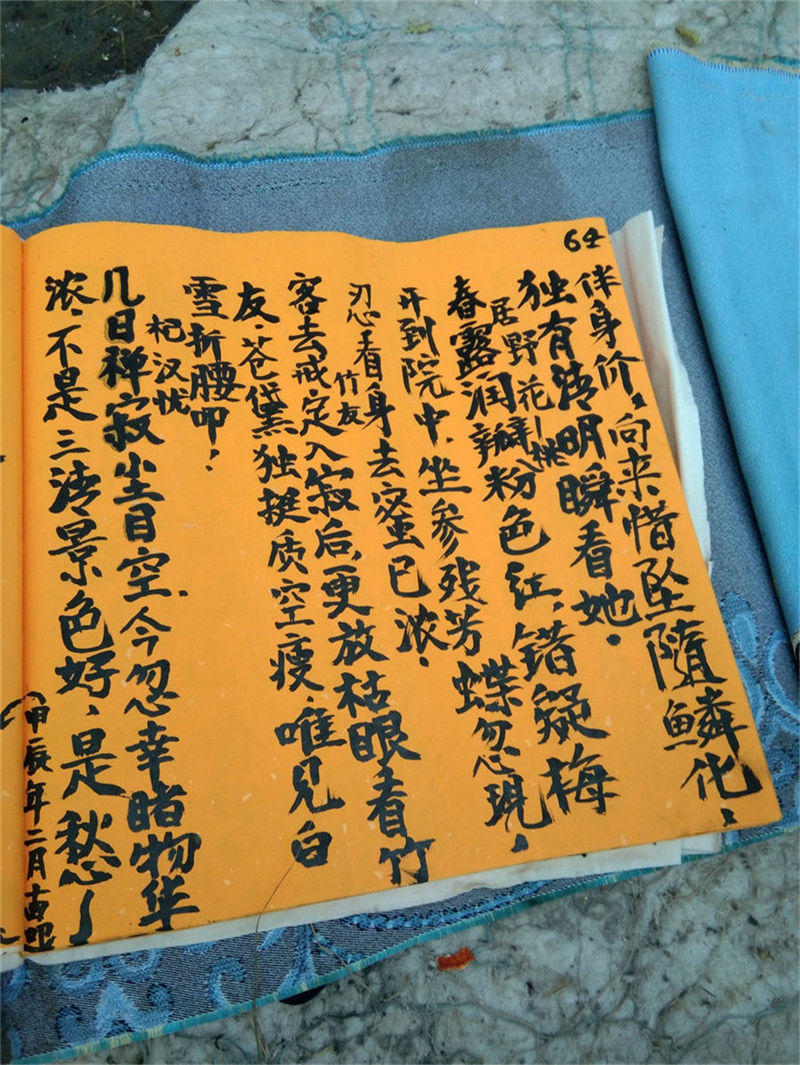 64
伴身价,向来惜坠隨鳞化,
独有清明瞬看她.
居野花/桃
春露润瓣粉色红,错疑梅
开到院中.坐参残芳蝶忽現,
忍看身去蜜已浓.
竹友
客去戒定入寂后,更放枯眼看竹
友.苍黛独挺质空瘦,唯见白
雪折腰叩!
杞汉忧
几日禅寂尘目空.今忽幸睹物华
浓、不是三清景色好、是愁心
(甲辰年二月古